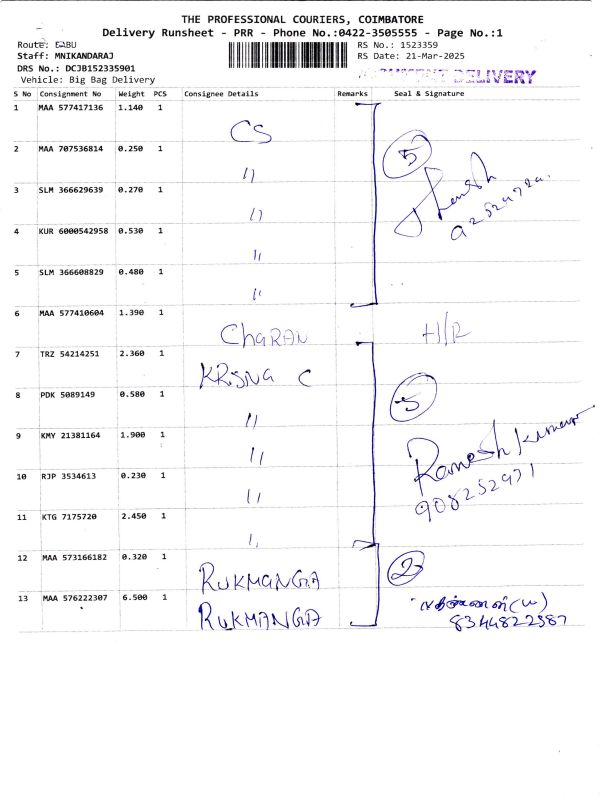 THE PROFESSIONAL COURIERS, COIMBATORE
Delivery Runsheet - PRR - Phone No.:0422-3505555 - Page No.:1
Route: BABU
RS No.: 1523359
Staff: MNIKANDARAJ
RS Date: 21-Mar-2025
DRS No.: DCJB152335901
Vehicle: Big Bag Delivery
DELIVERY
S No Consignment No Weight PCS Consignee Details Remarks Seal & Signature
1 MAA 577417136 1.140 1 CS
5
2 MAA 707536814 0.250 1 "
3 SLM 366629639 0.270 1 "
4 KUR 6000542958 0.530 1 "
5 SLM 366608829 0.480 1 "
6 MAA 577410604 1.390 1 CHARAN H/R
7 TRZ 54214251 2.360 1 KRISNA C
5
8 PDK 5089149 0.580 1 "
9 KMY 21381164 1.900 1 "
Ramesh Kumar
10 RJP 3534613 0.230 1 "
908252971
11 KTG 7175720 2.450 1 "
12 MAA 573166182 0.320 1 RUKMANGA 2
13 MAA 576222307 6.500 1 RUKMANGA
8344822387